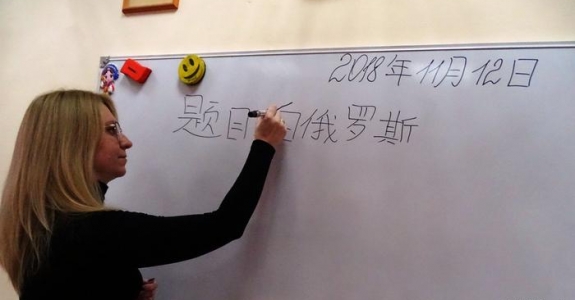 2018年11月12日
题目 俄罗斯